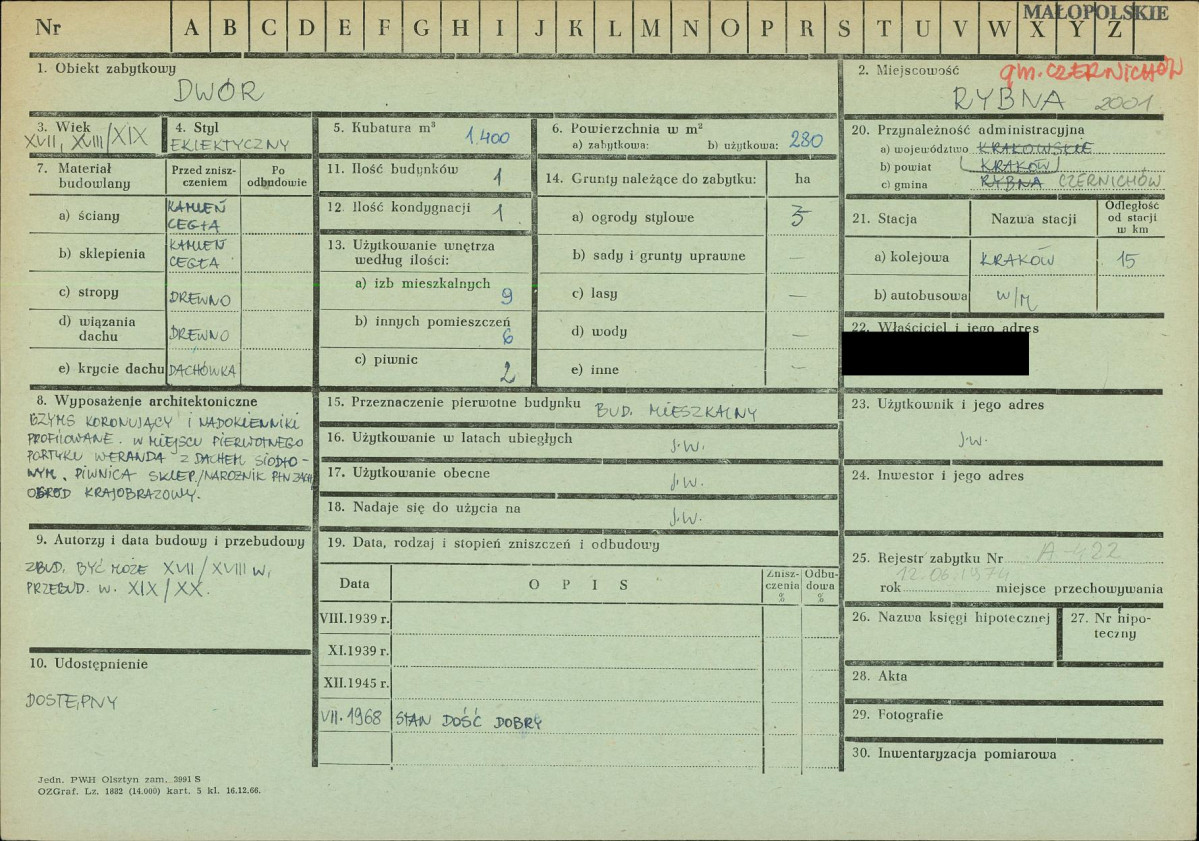 Nr A B C D E F G H I J K L M N O P R S T U V W X Y Z
MAŁOPOLSKIE
1. Obiekt zabytkowy
DWÓR
2. Miejscowość
gm. CZERNICHÓW
RYBNA 2001
3. Wiek
XVII, XVIII/XIX
4. Styl
EKLEKTYCZNY
5. Kubatura m³
1.400
6. Powierzchnia w m²
a) zabytkowa: b) użytkowa: 280
7. Materiał budowlany
Przed zniszczeniem
Po odbudowie
a) ściany KAMIEŃ CEGŁA
b) sklepienia KAMIEŃ CEGŁA
c) stropy DREWNO
d) wiązania dachu DREWNO
e) krycie dachu DACHÓWKA
8. Wyposażenie architektoniczne
GZYMS KORONUJĄCY I NADOKIENNIKI
PROFILOWANE. W MIEJSCU PIERWOTNEGO
PORTYKU WERANDA Z DACHEM SIODŁO-
WYM. PIWNICA SKLEP./NAROŻNIK PŁN ZACH/
OGRÓD KRAJOBRAZOWY.
9. Autorzy i data budowy i przebudowy
ZBUD. BYĆ MOŻE XVII/XVIII W,
PRZEBUD. W. XIX/XX.
10. Udostępnienie
DOSTĘPNY
11. Ilość budynków 1
12. Ilość kondygnacji 1
13. Użytkowanie wnętrza
według ilości:
a) izb mieszkalnych 9
b) innych pomieszczeń 6
c) piwnic 2
14. Grunty należące do zabytku: ha
a) ogrody stylowe
b) sady i grunty uprawne —
c) lasy —
d) wody —
e) inne —
15. Przeznaczenie pierwotne budynku BUD. MIESZKALNY
16. Użytkowanie w latach ubiegłych j.w.
17. Użytkowanie obecne j.w.
18. Nadaje się do użycia na j.w.
19. Data, rodzaj i stopień zniszczeń i odbudowy
Data O P I S Zniszczenia % Odbudowa %
VIII.1939 r.
XI.1939 r.
XII.1945 r.
VII.1968 STAN DOŚĆ DOBRY
20. Przynależność administracyjna
a) województwo KRAKOWSKIE
b) powiat KRAKÓW
c) gmina RYBNA CZERNICHÓW
21. Stacja Nazwa stacji Odległość od stacji w km
a) kolejowa KRAKÓW 15
b) autobusowa w/m
22. Właściciel i jego adres
23. Użytkownik i jego adres
j.w.
24. Inwestor i jego adres
25. Rejestr zabytku Nr A-422
12.06.1974
rok miejsce przechowywania
26. Nazwa księgi hipotecznej
27. Nr hipoteczny
28. Akta
29. Fotografie
30. Inwentaryzacja pomiarowa
Jedn. PWH Olsztyn zam. 3991 S
OZGraf. Lz. 1882 (14.000) kart. 5 kl. 16.12.66.